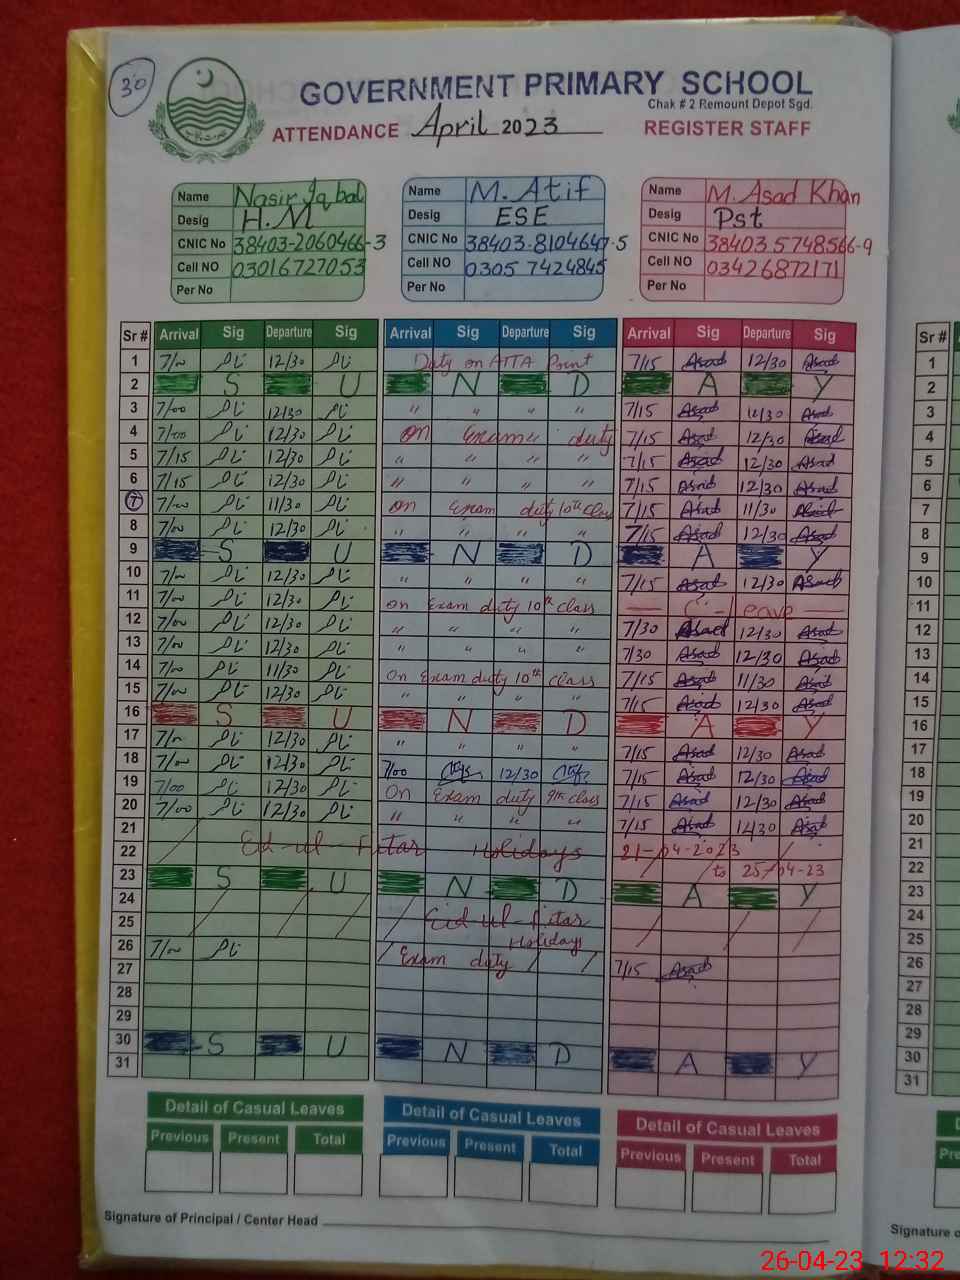 30
GOVERNMENT PRIMARY SCHOOL
Chak # 2 Remount Depot Sgd.
ATTENDANCE April 2023 REGISTER STAFF
Name Nasir Iqbal Name M. Atif Name M. Asad Khan
Desig H.M Desig ESE Desig Pst
CNIC No 38403-2060466-3 CNIC No 38403-8104647-5 CNIC No 38403 5748566-9
Cell NO 03016727053 Cell NO 0305 7424845 Cell NO 03426872171
Per No Per No Per No
Sr # Arrival Sig Departure Sig Arrival Sig Departure Sig Arrival Sig Departure Sig Sr #
1 7/00 12/30 Duty on ATTA Point 7/15 Asad 12/30 Asad 1
2 S U N D A Y 2
3 7/00 12/30 " " " " 7/15 Asad 12/30 Asad 3
4 7/00 12/30 on Exam duty 7/15 Asad 12/30 Asad 4
5 7/15 12/30 " " " " 7/15 Asad 12/30 Asad 5
6 7/15 12/30 " " " " 7/15 Asad 12/30 Asad 6
7 7/00 11/30 on Exam duty 10th class 7/15 Asad 11/30 Asad 7
8 7/00 12/30 " " " " 7/15 Asad 12/30 Asad 8
9 S U N D A Y 9
10 7/00 12/30 " " " " 7/15 Asad 12/30 Asad 10
11 7/00 12/30 on Exam duty 10th class C-leave 11
12 7/00 12/30 " " " " 7/30 Asad 12/30 Asad 12
13 7/00 12/30 " " " " 7/30 Asad 12/30 Asad 13
14 7/00 11/30 On Exam duty 10th class 7/15 Asad 11/30 Asad 14
15 7/00 12/30 " " " " 7/15 Asad 12/30 Asad 15
16 S U N D A Y 16
17 7/00 12/30 " " " " 7/15 Asad 12/30 Asad 17
18 7/00 12/30 7/00 12/30 7/15 Asad 12/30 Asad 18
19 7/00 12/30 On Exam duty 9th class 7/15 Asad 12/30 Asad 19
20 7/00 12/30 " " " " 7/15 Asad 12/30 Asad 20
21 Eid-ul-Fitar Holidays 21-04-2023 21
22 to 25-04-23 22
23 S U N D A Y 23
24 Eid ul-Fitar 24
25 Holidays 25
26 7/00 Exam duty 7/15 Asad 26
27 27
28 28
29 29
30 S U N D A Y 30
31 31
Detail of Casual Leaves Detail of Casual Leaves Detail of Casual Leaves
Previous Present Total Previous Present Total Previous Present Total
Signature of Principal / Center Head
26-04-23 12:32